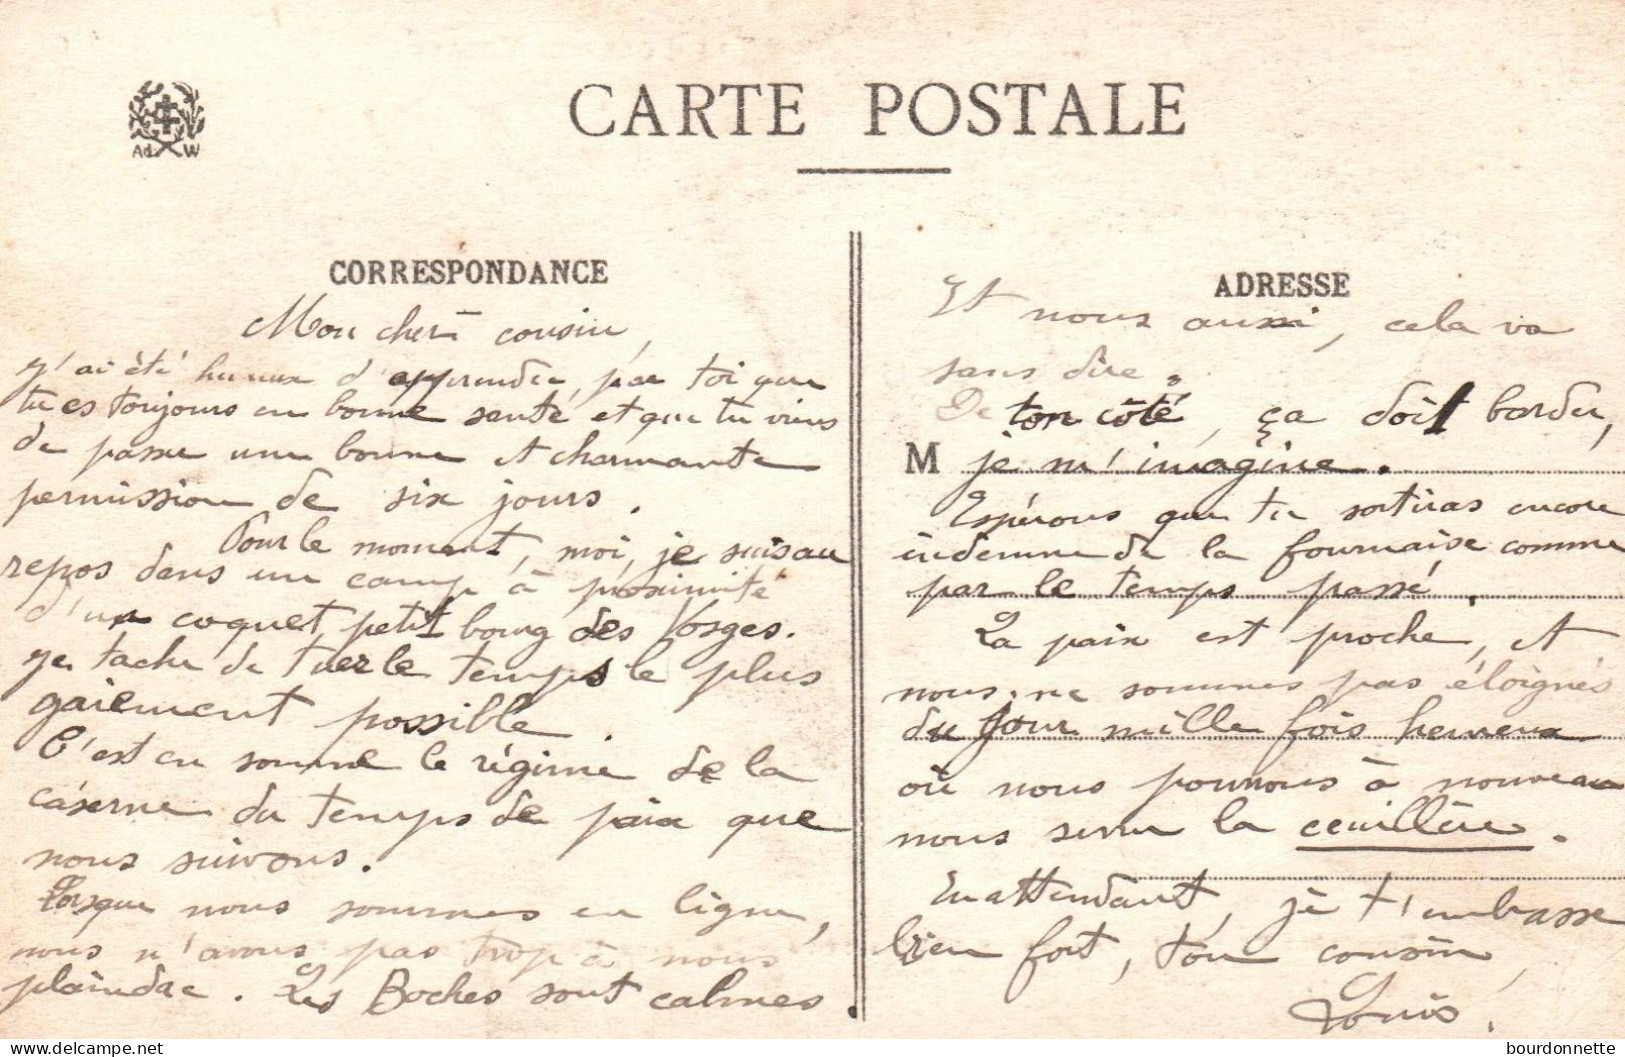 Ad W
CARTE POSTALE
CORRESPONDANCE
Mon cher cousin,
J'ai été heureux d'apprendre, par toi que
tu es toujours en bonne santé et que tu viens
de passer une bonne et charmante
permission de six jours.
Pour le moment, moi, je suis au
repos dans un camp à proximité
d'un coquet petit bourg des Vosges.
Je tache de tuer le temps le plus
gaiement possible.
C'est en somme le régime de la
caserne du temps de paix que
nous suivons.
Lorsque nous sommes en ligne,
nous n'avons pas trop à nous
plaindre. Les Boches sont calmes.
ADRESSE
Et nous aussi, cela va
sans dire.
De ton côté, ça doit barder,
M je m'imagine.
Espérons que tu sortiras encore
indemne de la fournaise comme
par le temps passé.
La paix est proche, et
nous ne sommes pas éloignés
du jour mille fois heureux
où nous pourrons à nouveau
nous serrer la ceuillère.
En attendant, je t'embrasse
bien fort, ton cousin,
Louis.
bourdonnette